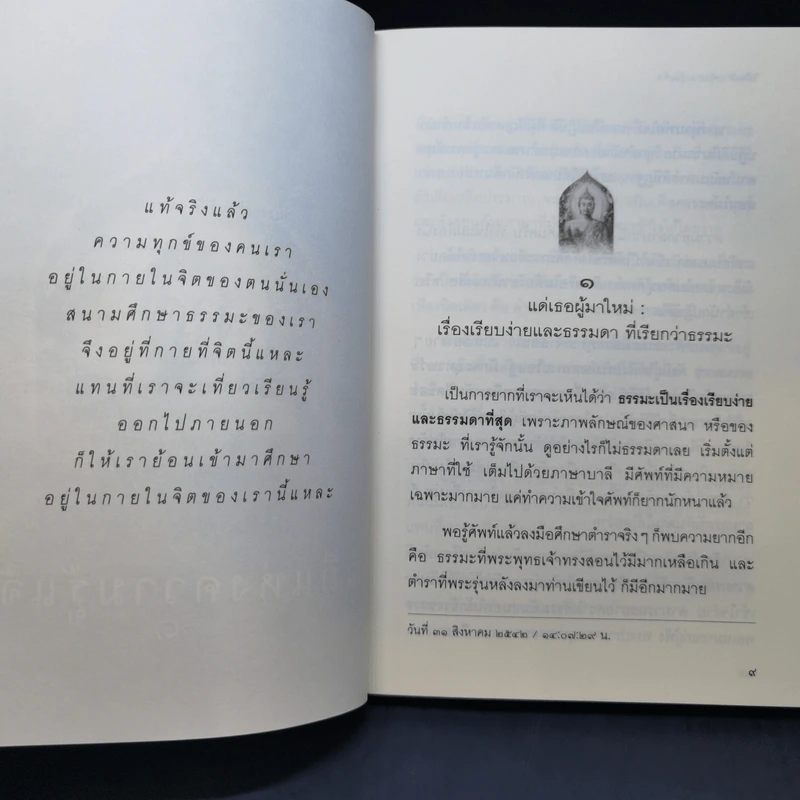 แท้จริงแล้ว
ความทุกข์ของคนเรา
อยู่ในกายในจิตของตนนั่นเอง
สนามศึกษาธรรมะของเรา
จึงอยู่ที่กายที่จิตนี้แหละ
แทนที่เราจะเที่ยวเรียนรู้
ออกไปภายนอก
ก็ให้เราย้อนเข้ามาศึกษา
อยู่ในกายในจิตของเรานี้แหละ
๑
แด่เธอผู้มาใหม่ :
เรื่องเรียบง่ายและธรรมดา ที่เรียกว่าธรรมะ
เป็นการยากที่เราจะเห็นได้ว่า ธรรมะเป็นเรื่องเรียบง่าย
และธรรมดาที่สุด เพราะภาพลักษณ์ของศาสนา หรือของ
ธรรมะ ที่เรารู้จักนั้น ดูอย่างไรก็ไม่ธรรมดาเลย เริ่มตั้งแต่
ภาษาที่ใช้ เต็มไปด้วยภาษาบาลี มีศัพท์ที่มีความหมาย
เฉพาะมากมาย แค่ทำความเข้าใจศัพท์ก็ยากนักหนาแล้ว
พอรู้ศัพท์แล้วลงมือศึกษาตำราจริงๆ ก็พบความยากอีก
คือ ธรรมะที่พระพุทธเจ้าทรงสอนไว้มีมากเหลือเกิน และ
ตำราที่พระรุ่นหลังลงมาท่านเขียนไว้ ก็มีอีกมากมาย
วันที่ ๓๑ สิงหาคม ๒๕๔๒ / ๑๔:๐๗:๒๙ น.
๙